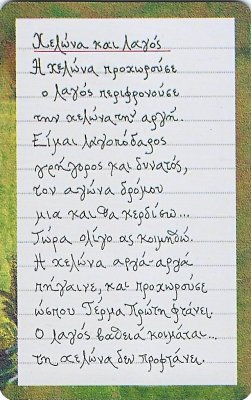 Χελώνα και λαγός
Η χελώνα προχωρούσε
ο λαγός περιφρονούσε
την χελώνα την αργή.
Είμαι λαγοπόδαρος
γρήγορος και δυνατός,
τον αγώνα δρόμου
μια και θα κερδίσω...
Τώρα ολίγο ας κοιμηθώ.
Η χελώνα αργά-αργά
πήγαινε, και προχωρούσε
ώσπου Τέρμα Πρώτη φτάνει.
Ο λαγός βαθεια κοιμάται...
τη χελώνα δεν προφτάνει.